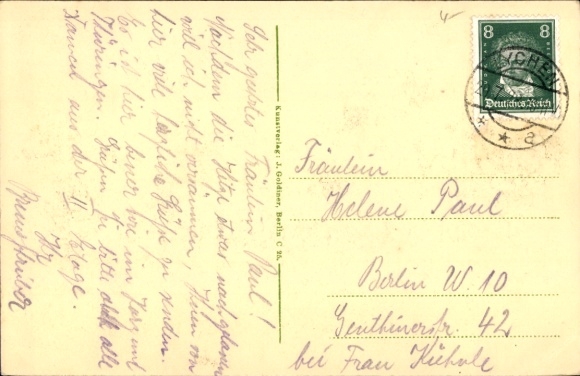 Sehr geehrtes Fräulein Paul!
Nachdem die Hitze etwas nachgelassen
will ich nicht versäumen, Ihnen von
hier viele herzliche Grüße zu senden.
Es ist hier schöner wie im Harz und
Thüringen. Grüßen Sie bitte alle
Damen aus der II Etage.
Ihr
Kunstverlag: J. Goldiner, Berlin C 25.
8 8
Deutsches Reich
LYCHEN
* * a
Fräulein
Helene Paul
Berlin W. 10
Genthinerstr. 42
bei Frau